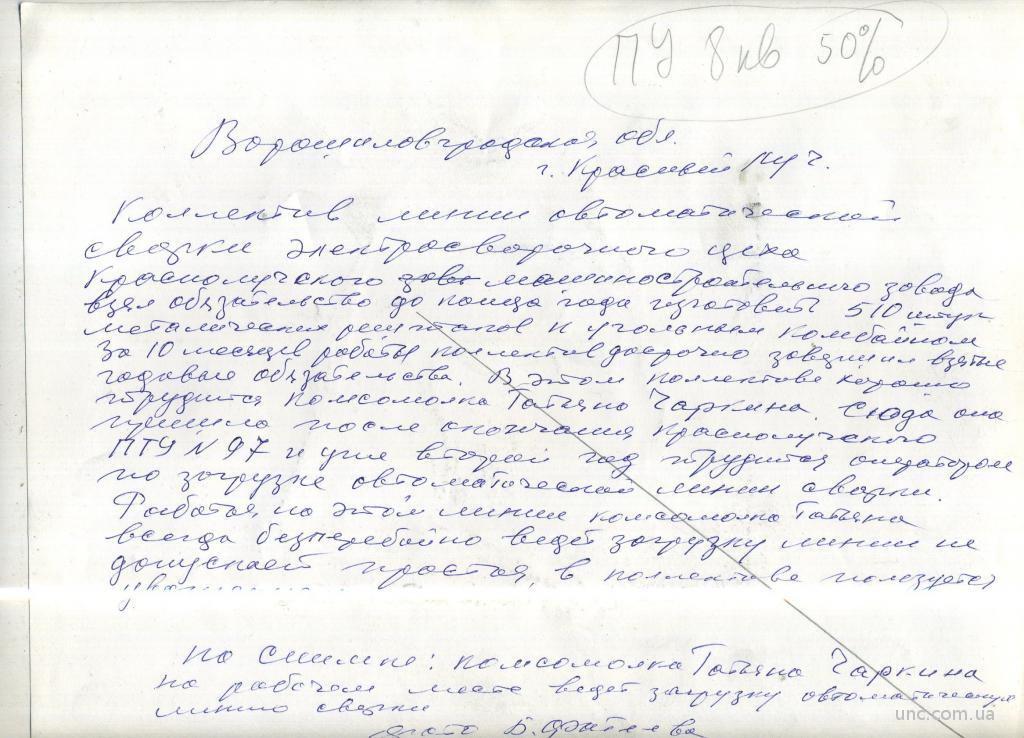 ПУ 8 кв 50%
Ворошиловградская обл.
г. Красный Луч.
Коллектив линии автоматической
сварки электросварочного цеха
Краснолучского машиностроительного завода
взял обязательство до конца года изготовить 510 штук
металических рештаков к угольным комбайном
За 10 месяцев работы коллектив досрочно завершил взятые
годовые обязательства. В этом коллективе хорошо
трудится комсомолка Татьяна Чаркина. Сюда она
пришла после окончания Краснолучского
ПТУ N 97 и уже второй год трудится оператором
по загрузке автоматической линии сварки.
Работая на этой линии комсомолка Татьяна
всегда безперебойно ведет загрузку линии не
допускает простоя, в коллективе ползуется
На снимке: комсомолка Татьяна Чаркина
на рабочем месте ведет загрузку автоматическую
линию сварки
фото Б.
unc.com.ua